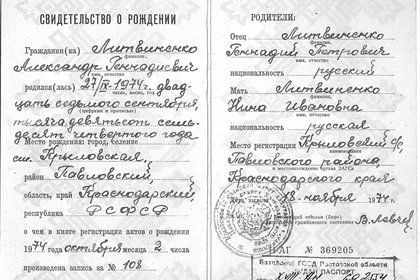 СВИДЕТЕЛЬСТВО О РОЖДЕНИИ
Гражданин(ка) Литвиненко
фамилия
Александр Геннадиевич
имя, отчество
родился(лась) 27/IX-1974 г. двад-
число, месяц, год
цать седьмого сентября,
(цифрами и прописью)
тысяча девятьсот семь-
десят четвертого года
Место рождения: город, селение
ст. Крыловская,
район Павловский,
область, край Краснодарский,
республика РСФСР
о чем в книге регистрации актов о рождении
1974 года октября месяца 2 числа
произведена запись за № 108
РОДИТЕЛИ:
Отец Литвиненко
фамилия
Геннадий Петрович
имя, отчество
национальность русский
Мать Литвиненко
фамилия
Нина Ивановна
имя, отчество
национальность русская
Место регистрации Крыловский с/с
наименование
Павловского района,
и местонахождение органа ЗАГСа
Краснодарского края
Дата выдачи 18 ноября 1974 г.
№ 369205
Ростовской области
ПАСПОРТ